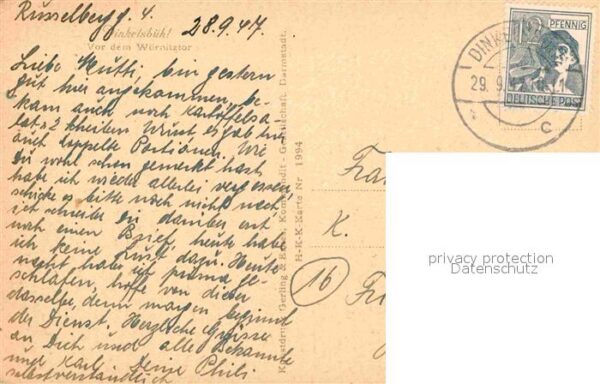 28.9.47.
Dinkelsbühl
Vor dem Wörnitztor
Liebe Mutti, bin gestern
gut hier angekommen, be-
kam auch noch Kartoffelsa-
lat + 2 Wurst es gab hier
auch doppelte Portionen. Wie
Du wohl schon gemerkt hast
habe ich wieder allerlei vergessen,
schicke es bitte noch nicht nach,
ich schreibe Dir darüber erst
noch einen Brief, heute habe
ich keine Lust dazu. Heute
nacht habe ich prima ge-
schlafen, hoffe von dieser
dasselbe denn morgen beginnt
der Dienst. Herzliche Grüsse
an Dich und alle Bekannte
und Karle Deine Phili
selbstverständlich
Kupfertiefdruck Gerling & Kommandit-Gesellschaft, Darmstadt.
H-K-K Karte Nr 1994
12 PFENNIG
DEUTSCHE POST
DINKE
29.9.
c
Fra
K.
16
privacy protection
Datenschutz